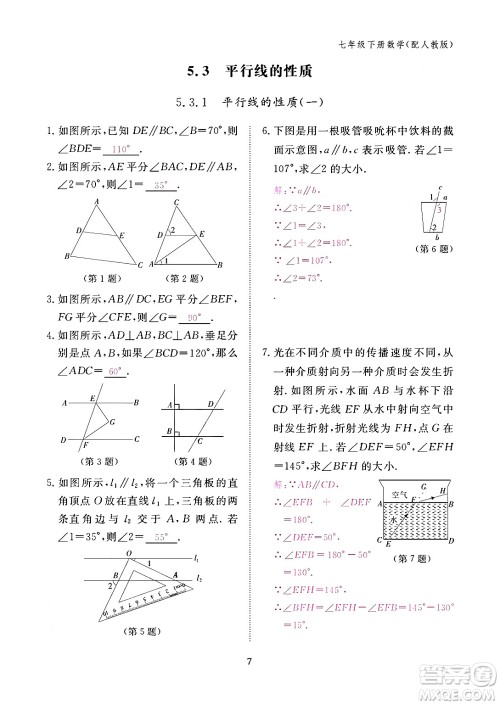 七年级下册数学(配人教版)
5.3 平行线的性质
5.3.1 平行线的性质(一)
1. 如图所示,已知 DE∥BC,∠B=70°,则
∠BDE= 110° .
2. 如图所示,AE 平分∠BAC,DE∥AB,
∠2=70°,则∠1= 35° .
A
D
E
B
C
(第 1 题)
C
D
2
E
1
A
B
(第 2 题)
3. 如图所示,AB∥CD,EG 平分∠BEF,
FG 平分∠EFD,则∠G= 90° .
4. 如图所示,AD⊥AB,BC⊥AB,垂足分
别是点 A,B,如果∠BCD=120°,那么
∠ADC= 60° .
(第 3 题)
(第 4 题)
5. 如图所示,l₁∥l₂,将一个三角板的直
角顶点 O 放在直线 l₁ 上,三角板的两
条直角边与 l₂ 交于 A,B 两点. 若∠
1=35°,则∠2= 55° .
O
l₁
1
B
A
l₂
2
(第 5 题)
6. 下图是用一根吸管吸吮杯中饮料的截
面示意图,a∥b,c 表示吸管. 若∠1=
107°,求∠2 的大小.
解:∵a∥b,
∴∠3+∠2=180°.
∵∠3=∠1,
∴∠1+∠2=180°.
∵∠1=107°,
∴∠2=73°.
c
a
3
2
b
(第 6 题)
7. 光在不同介质中的传播速度不同,从
一种介质射向另一种介质时会发生折
射. 如图所示,水面 AB 与水杯下沿
CD 平行,光线 EF 从水中射向空气中
时发生折射,折射光线为 FH,点 G 在
射线 EF 上. 已知∠DEF=50°,∠EFH
=145°,求∠BFH 的大小.
解:∵AB∥CD,
∴∠EFB + ∠DEF
=180°.
∴∠EFB = 180° - 50°
=130°.
∴∠BFH=∠EFH-∠EFB=15°.
空气
G
H
A
F
B
水
C
E
D
(第 7 题)
7